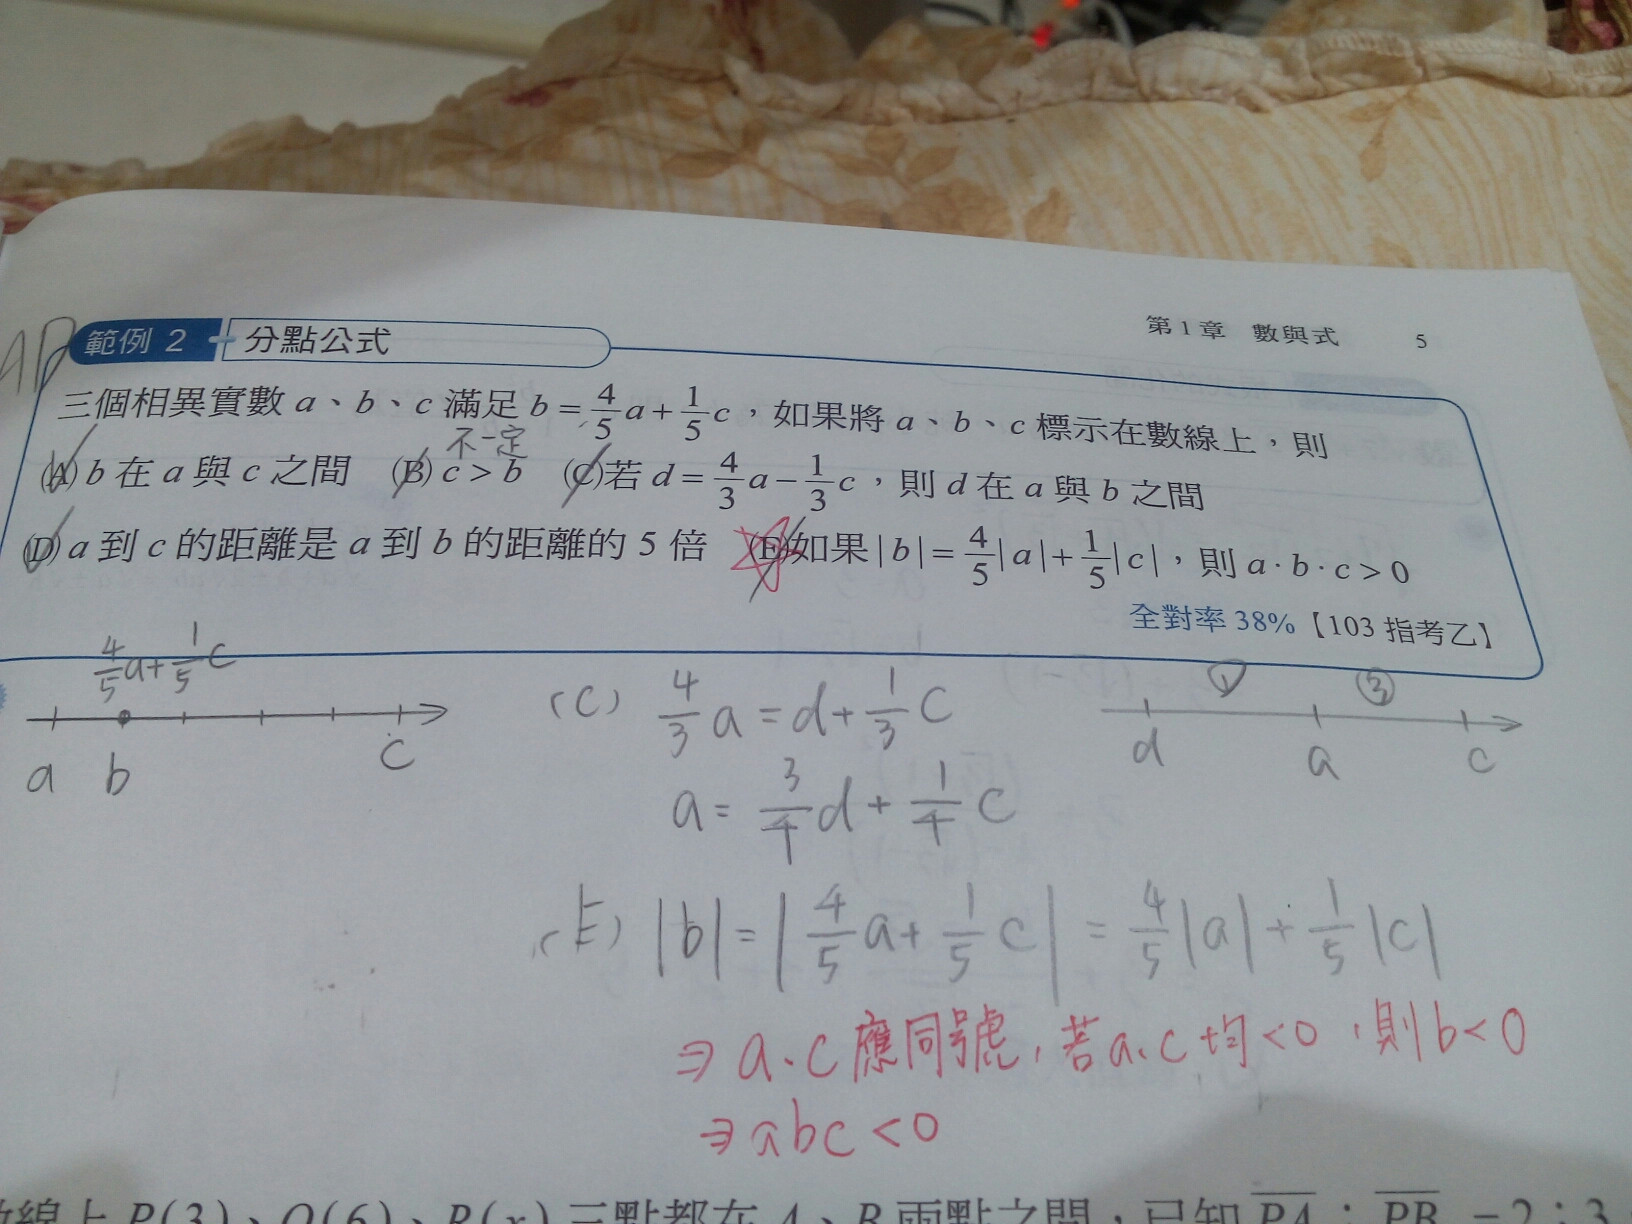 第1章 數與式 5
AD
範例 2 分點公式
三個相異實數 a、b、c 滿足 b = 4/5 a + 1/5 c，如果將 a、b、c 標示在數線上，則
不一定
(A) b 在 a 與 c 之間 (B) c > b (C) 若 d = 4/3 a − 1/3 c，則 d 在 a 與 b 之間
(D) a 到 c 的距離是 a 到 b 的距離的 5 倍 (E) 如果 |b| = 4/5 |a| + 1/5 |c|，則 a · b · c > 0
全對率 38%【103 指考乙】
4/5 a + 1/5 c
a b c
(C) 4/3 a = d + 1/3 c
① ③
d a c
a = 3/4 d + 1/4 c
(E) |b| = |4/5 a + 1/5 c| = 4/5 |a| + 1/5 |c|
⇒ a、c 應同號，若 a、c 均 < 0，則 b < 0
⇒ abc < 0
線上 P(3)、Q(6)、R(x) 三點都在 A、B 兩點之間，已知 PA : PB = 2 : 3